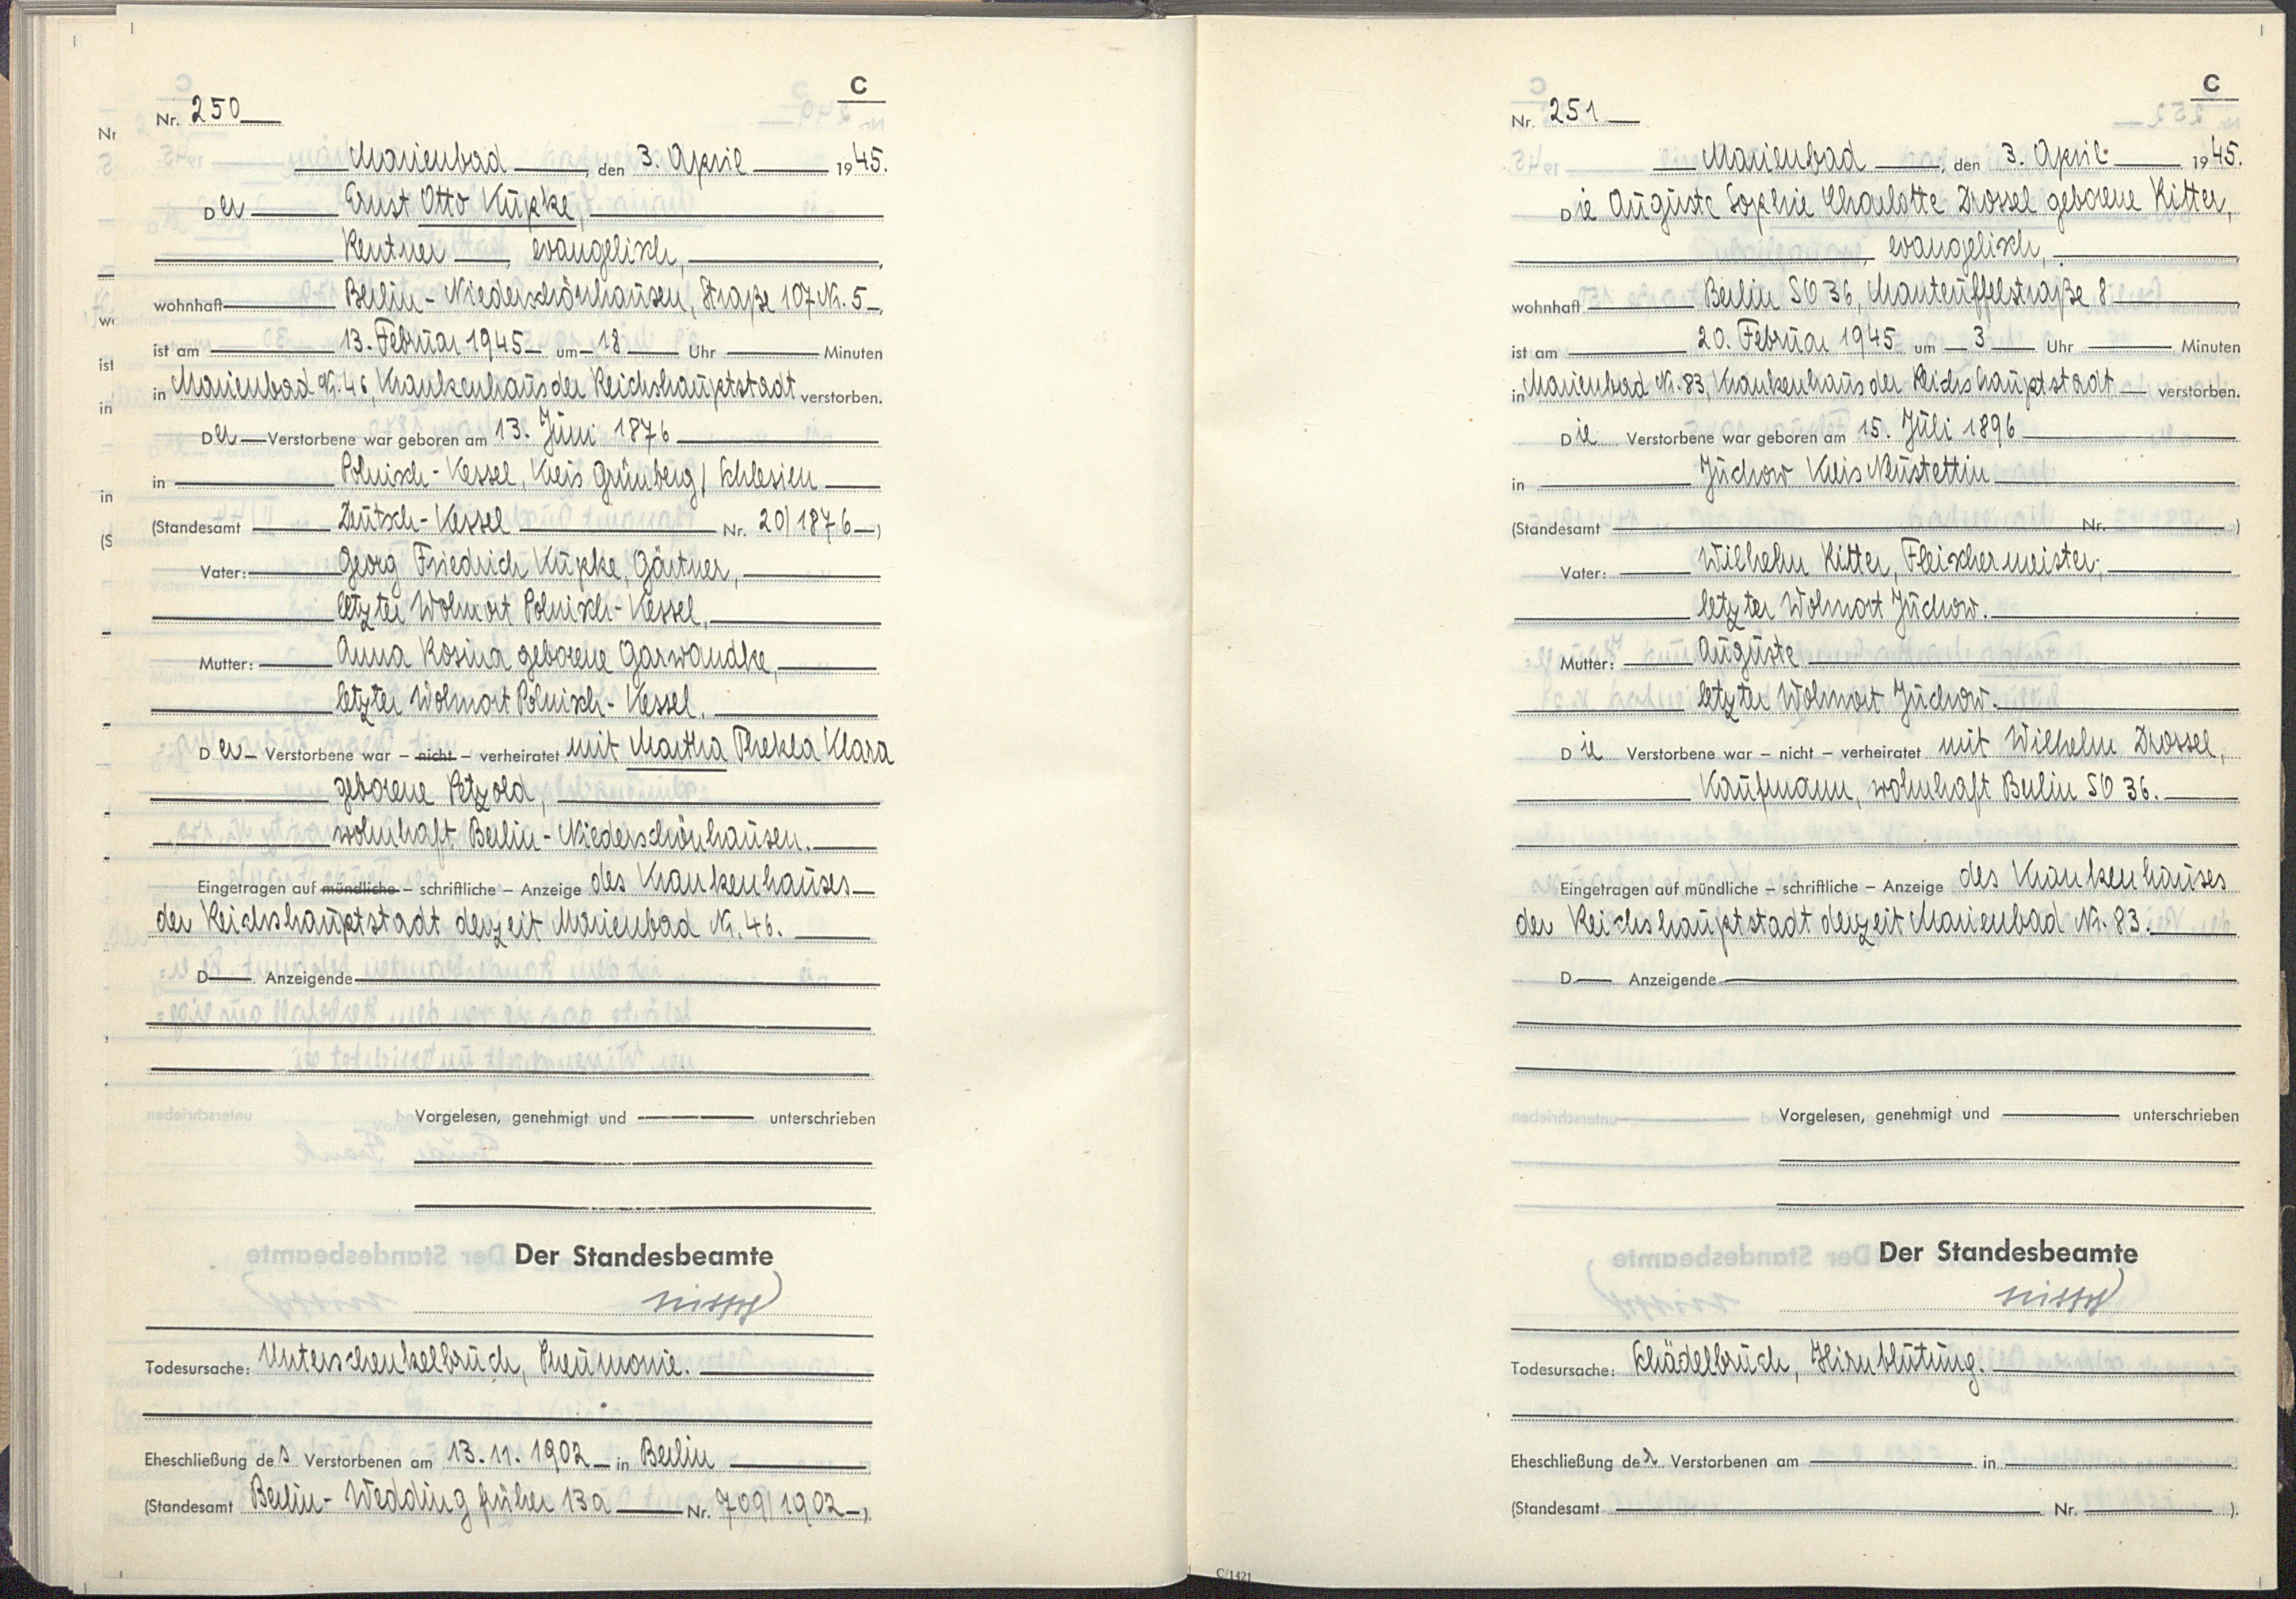 C
Nr. 250
Marienbad, den 3. April 1945.
Der Ernst Otto Kupke,
Rentner, evangelisch,
wohnhaft Berlin-Niederschönhausen, Straße 107 Nr. 5,
ist am 13. Februar 1945 um 18 Uhr Minuten
in Marienbad Nr. 46, Krankenhaus der Reichshauptstadt verstorben.
Der Verstorbene war geboren am 13. Juni 1876
in Polnisch-Kessel, Kreis Grünberg / Schlesien
(Standesamt Deutsch-Kessel Nr. 20/1876)
Vater: Georg Friedrich Kupke, Gärtner,
letzter Wohnort Polnisch-Kessel.
Mutter: Anna Rosina geborene Garwandke,
letzter Wohnort Polnisch-Kessel.
Der Verstorbene war – nicht – verheiratet mit Martha Thekla Klara
geborene Petzold,
wohnhaft Berlin-Niederschönhausen.
Eingetragen auf mündliche – schriftliche – Anzeige des Krankenhauses
der Reichshauptstadt derzeit Marienbad Nr. 46.
D Anzeigende
Vorgelesen, genehmigt und unterschrieben
Der Standesbeamte
Todesursache: Unterschenkelbruch, Pneumonie.
Eheschließung des Verstorbenen am 13.11.1902 in Berlin
(Standesamt Berlin-Wedding früher 13a Nr. 709/1902).
C
Nr. 251
Marienbad, den 3. April 1945.
Die Auguste Sophie Charlotte Drossel geborene Ritter,
evangelisch,
wohnhaft Berlin SO 36, Manteuffelstraße 8
ist am 20. Februar 1945 um 3 Uhr Minuten
in Marienbad Nr. 83, Krankenhaus der Reichshauptstadt verstorben.
Die Verstorbene war geboren am 15. Juli 1896
in Juchow Kreis Neustettin
(Standesamt Nr. )
Vater: Wilhelm Ritter, Fleischermeister,
letzter Wohnort Juchow.
Mutter: Auguste
letzter Wohnort Juchow.
Die Verstorbene war – nicht – verheiratet mit Wilhelm Drossel,
Kaufmann, wohnhaft Berlin SO 36.
Eingetragen auf mündliche – schriftliche – Anzeige des Krankenhauses
der Reichshauptstadt derzeit Marienbad Nr. 83.
D Anzeigende
Vorgelesen, genehmigt und unterschrieben
Der Standesbeamte
Todesursache: Schädelbruch, Hirnblutung.
Eheschließung der Verstorbenen am in
(Standesamt Nr. ).
C/1421